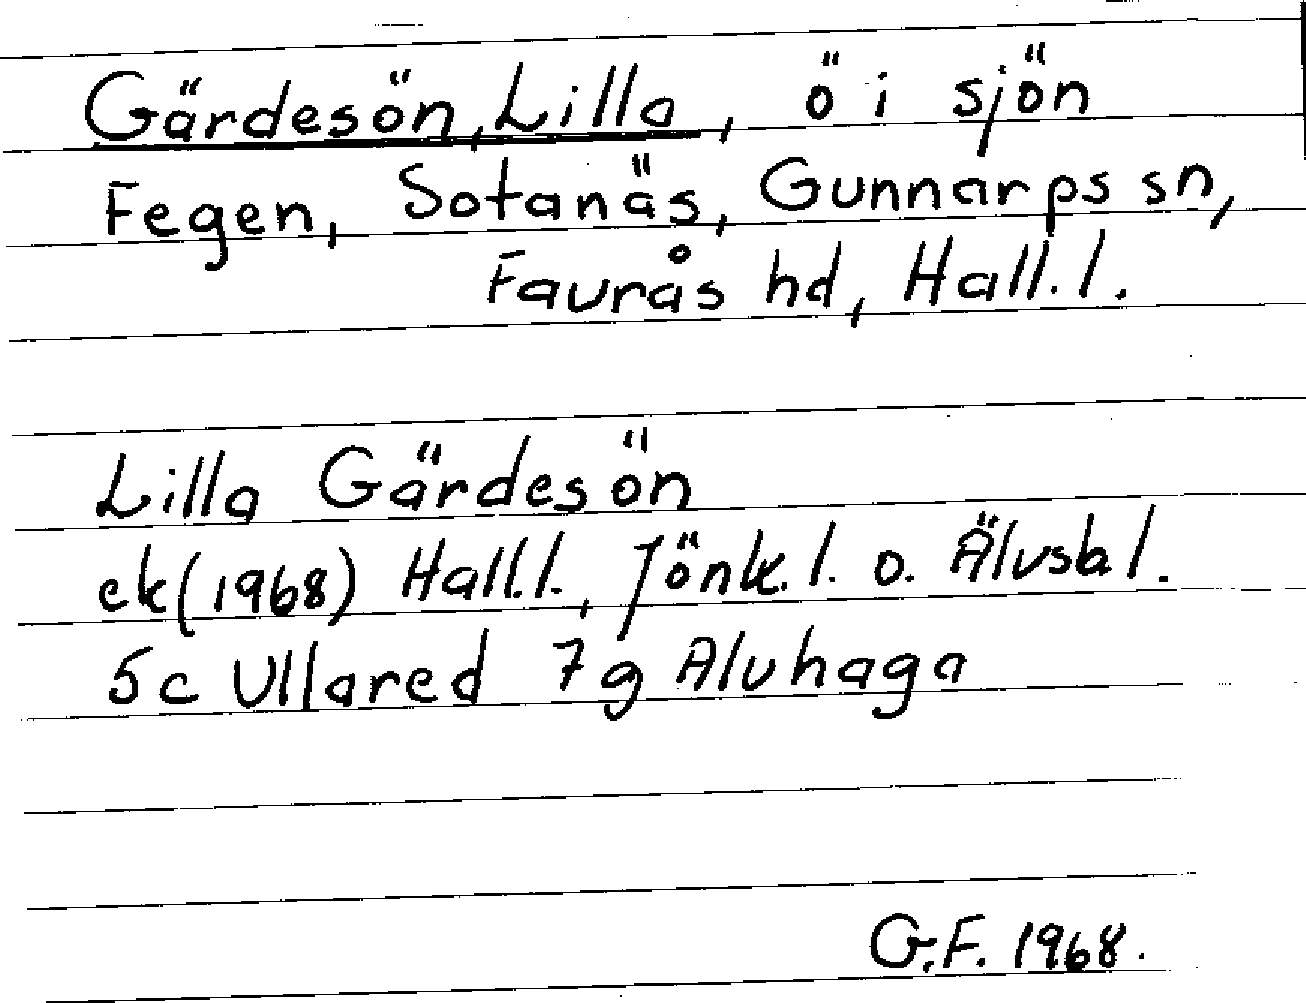 Gärdesön, Lilla, ö i sjön
Fegen, Sotanäs, Gunnarps sn,
Faurås hd, Hall. l.
Lilla Gärdesön
ek (1968) Hall. l., Jönk. l. o. Älvsb l.
5c Ullared 7g Alvhaga
G.F. 1968.